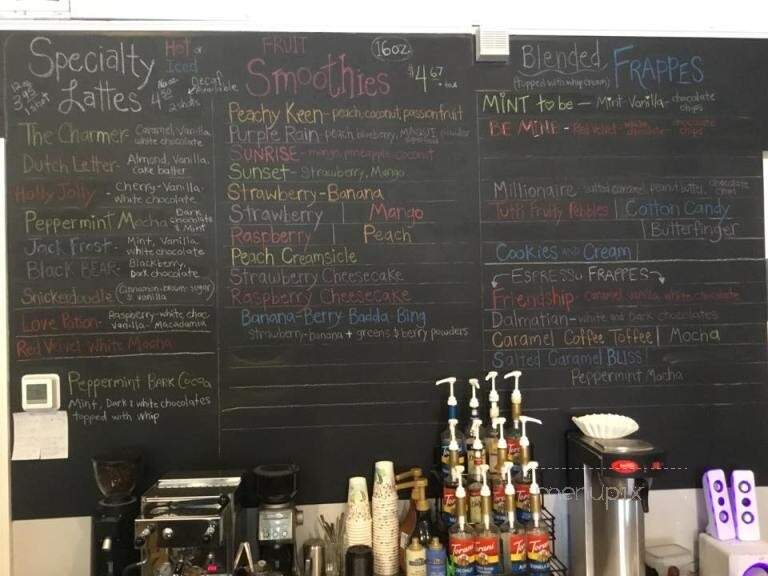 Specialty
Lattes
Hot or
Iced
12 oz
3.95
1 shot
16 oz
4.50
2 shots
Decaf
available
The Charmer - Caramel, Vanilla
white chocolate
Dutch Letter - Almond, Vanilla,
cake batter
Holly Jolly - Cherry-Vanilla-
white chocolate
Peppermint Mocha - Dark
chocolate
& Mint
Jack Frost - Mint, Vanilla
white chocolate
Black BEAR - Blackberry,
Dark chocolate
Snickerdoodle (Cinnamon, brown sugar
& vanilla)
Love Potion - Raspberry-white choc
vanilla-Macadamia
Red Velvet White Mocha
Peppermint BARK Cocoa
Mint, Dark & white chocolates
topped with whip
FRUIT
Smoothies
16oz
$4.67
+ tax
Peachy Keen - peach, coconut, passionfruit
Purple Rain - peach, blueberry, MAQUI powder
superfood
SUNRISE - mango, pineapple-coconut
Sunset - Strawberry, Mango
Strawberry-Banana
Strawberry | Mango
Raspberry | Peach
Peach Creamsicle
Strawberry Cheesecake
Raspberry Cheesecake
Banana-Berry Badda-Bing
strawberry-banana + greens & berry powders
Blended FRAPPES
(topped with whip cream)
MINT to be - Mint-Vanilla-chocolate
chips
BE MINE - Red velvet white chocolate chocolate
chips
Millionaire salted caramel, peanut butter, chocolate
chips
Tutti Fruity Pebbles | Cotton Candy
| Butterfinger
Cookies AND Cream |
ESPRESSO FRAPPES
Friendship - caramel vanilla white chocolate
Dalmatian - white and Dark chocolates
Caramel Coffee Toffee | Mocha
Salted Caramel BLISS!
Peppermint Mocha
menupix
Torani
Torani
Torani
Torani